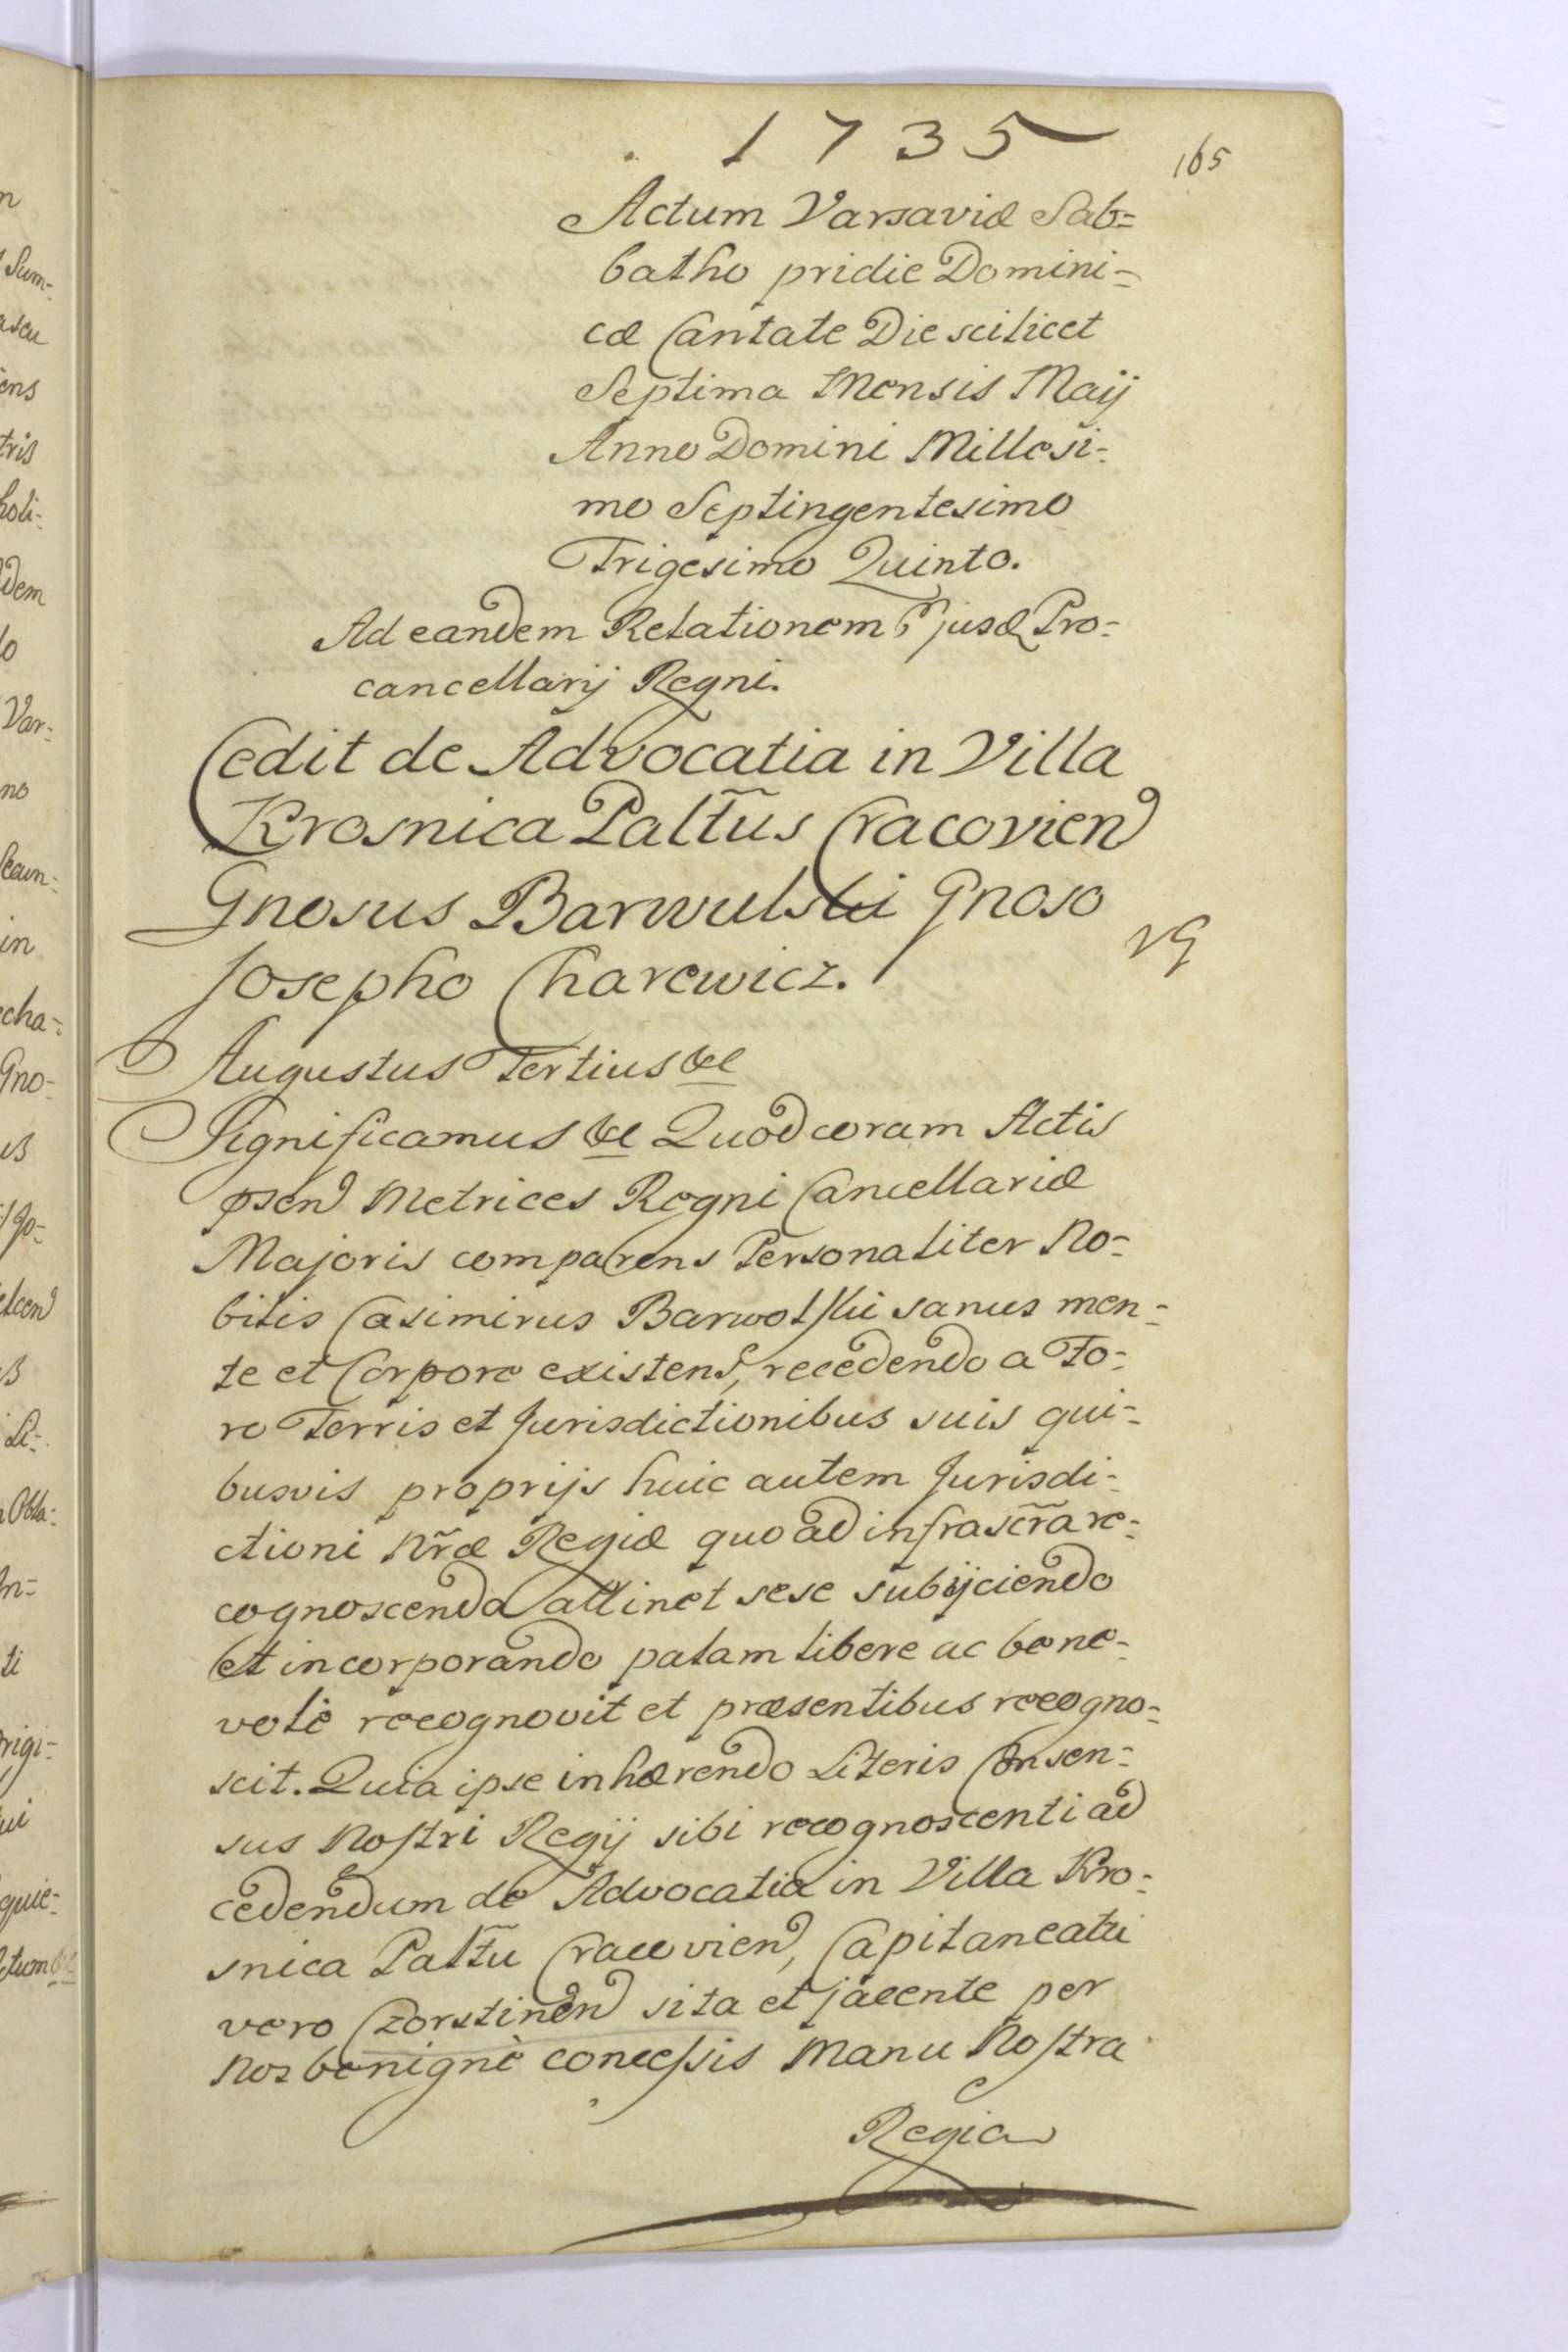 1735
165
Actum Varsaviæ Sab=
batho pridie Domini=
cæ Cantate Die scilicet
Septima Mensis Maij
Anno Domini Millesi=
mo Septingentesimo
Trigesimo Quinto.
Ad eandem Relationem Ejusd Pro=
cancellarij Regni.
Cedit de Advocatia in Villa
Krosnica Palt̃us Cracovien
Gnosus Barwulski Gnoso
Josepho Charewicz.
Augustus Tertius &c
Significamus &c Quod coram Actis
psen Metrices Regni Cancellariæ
Majoris comparens Personaliter No=
bilis Casimirus Barwolski sanus men=
te et Corpore existens, recedendo a Fo=
ro Terris et Jurisdictionibus suis qui=
busvis proprijs huic autem Jurisdi=
ctioni Nr̃æ Regiæ quo ad infrascr̃a re=
cognoscenda attinet sese subijciendo
et incorporando palam libere ac bene=
vole recognovit et præsentibus recogno=
scit. Quia ipse inhærendo Literis Consen=
sus Nostri Regij sibi recognoscenti ad
cedendum de Advocatia in Villa Kro=
snica Palt̃u Cracovien, Capitaneatu
vero Czorstinen sita et jacente per
Nos benignè concessis Manu Nostra
Regia